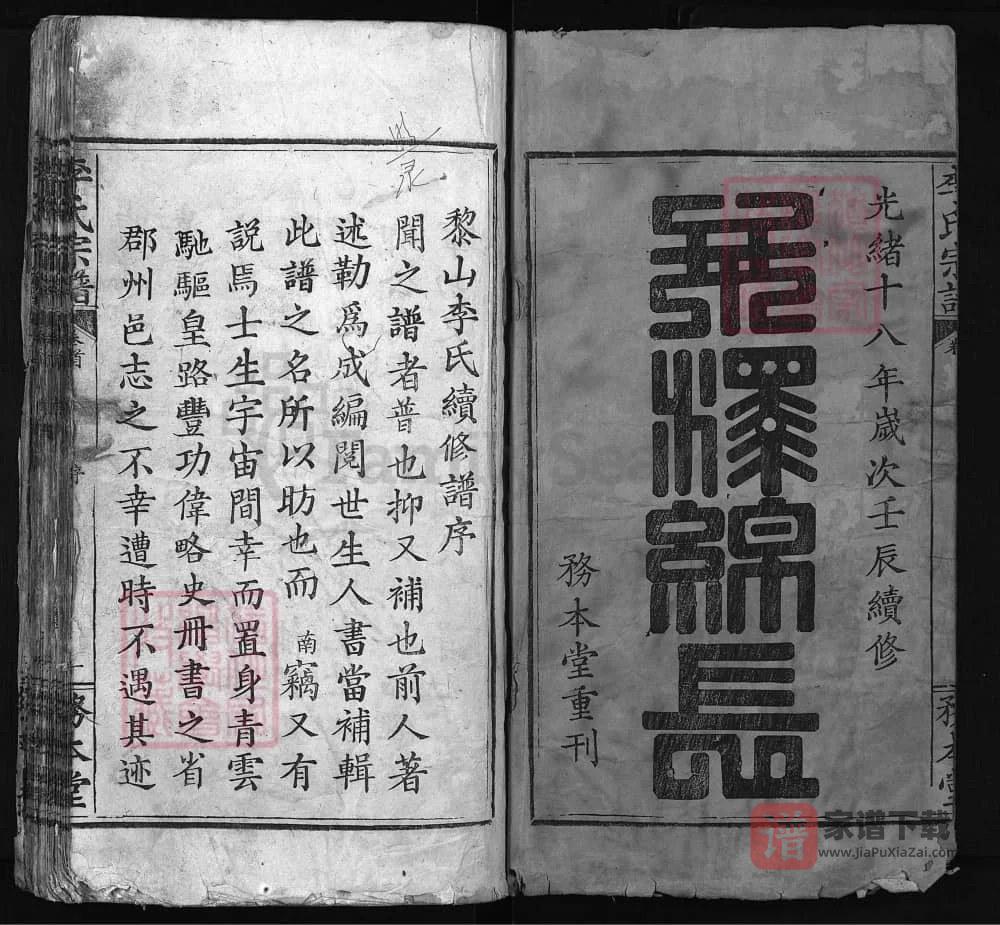 李氏宗譜
務本堂
光緒十八年歲次壬辰續修
澤綿長
務本堂重刊
黎山李氏續修譜序
聞之譜者普也抑又補也前人著
述勒爲成編閱世生人書當補輯
此譜之名所以昉也而南竊又有
說焉士生宇宙間幸而置身青雲
馳驅皇路豐功偉略史冊書之省
郡州邑志之不幸遭時不遇其迹
李氏宗譜
卷首
序
一
務本堂
谱
家谱下载
www.JiaPuXiaZai.com